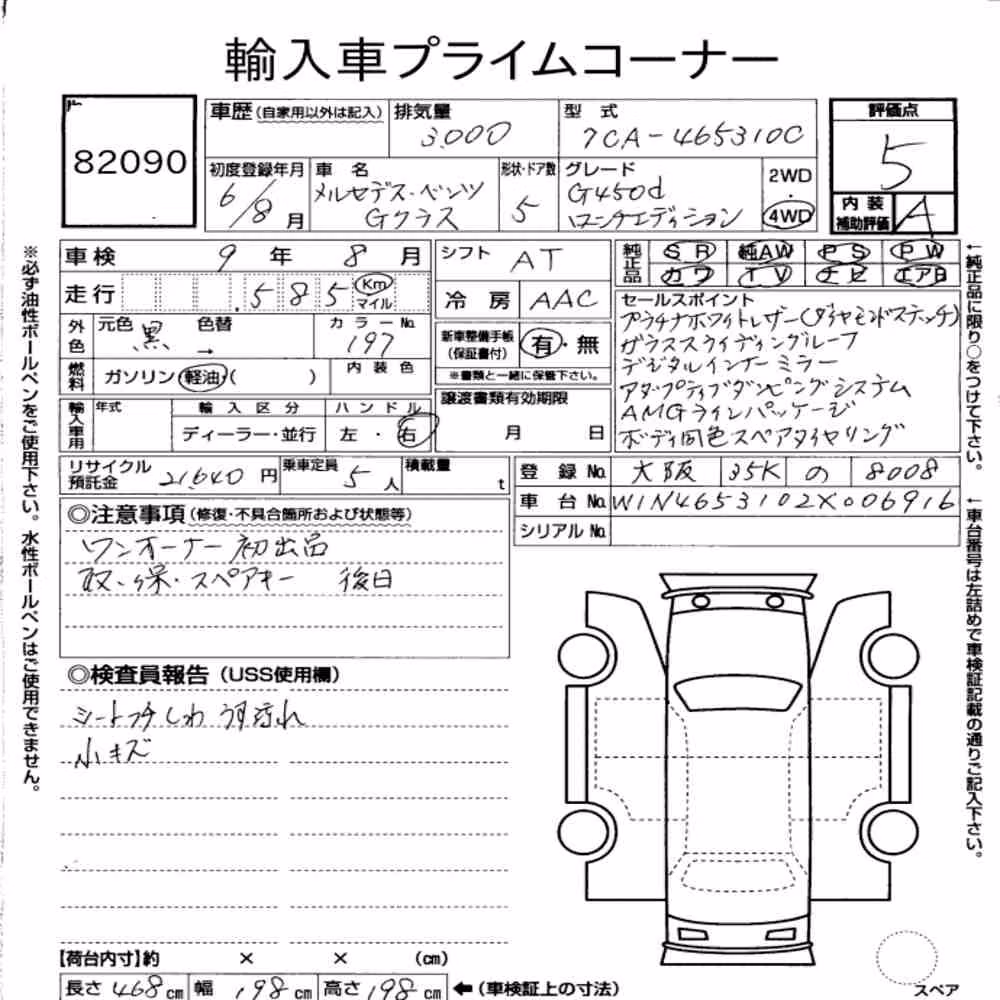 輸入車プライムコーナー
82090
車歴 (自家用以外は記入)
排気量 3.000
型式 7CA-465310C
評価点 5
内装補助評価 A
初度登録年月 6/8月
車名 メルセデス・ベンツ Gクラス
形状・ドア数 5
グレード G450d ローンチエディション
2WD・4WD
車検 9年 8月
走行 585 Km マイル
シフト AT
冷房 AAC
純正品 SR 純AW PS PW
カワ TV ナビ エアB
外色 元色 黒 色替 →
カラーNo. 197
内装色
燃料 ガソリン・軽油・( )
新車整備手帳(保証書付) 有・無
※書類と一緒に保管下さい。
セールスポイント
プラチナホワイトレザー(ダイヤモンドステッチ)
ガラススライディングルーフ
デジタルインナーミラー
アダプティブダンピングシステム
AMGラインパッケージ
ボディ同色スペアタイヤリング
輸入車用 年式
輸入区分 ディーラー・並行
ハンドル 左・右
譲渡書類有効期限 月 日
リサイクル預託金 21,640円
乗車定員 5人
積載量 t
登録No. 大阪 35K の 8008
車台No. W1N4653102X006916
シリアルNo.
◎注意事項 (修復・不具合箇所および状態等)
ワンオーナー 初出品
取・保・スペアキー 後日
◎検査員報告 (USS使用欄)
シートフチしわ うす汚れ
小キズ
【荷台内寸】約 × × (cm)
長さ 468cm 幅 198cm 高さ 198cm ←(車検証上の寸法)
スペア
※必ず油性ボールペンをご使用下さい。水性ボールペンはご使用できません。
←純正品に限り○をつけて下さい。
←車台番号は左詰めで車検証記載の通りご記入下さい。